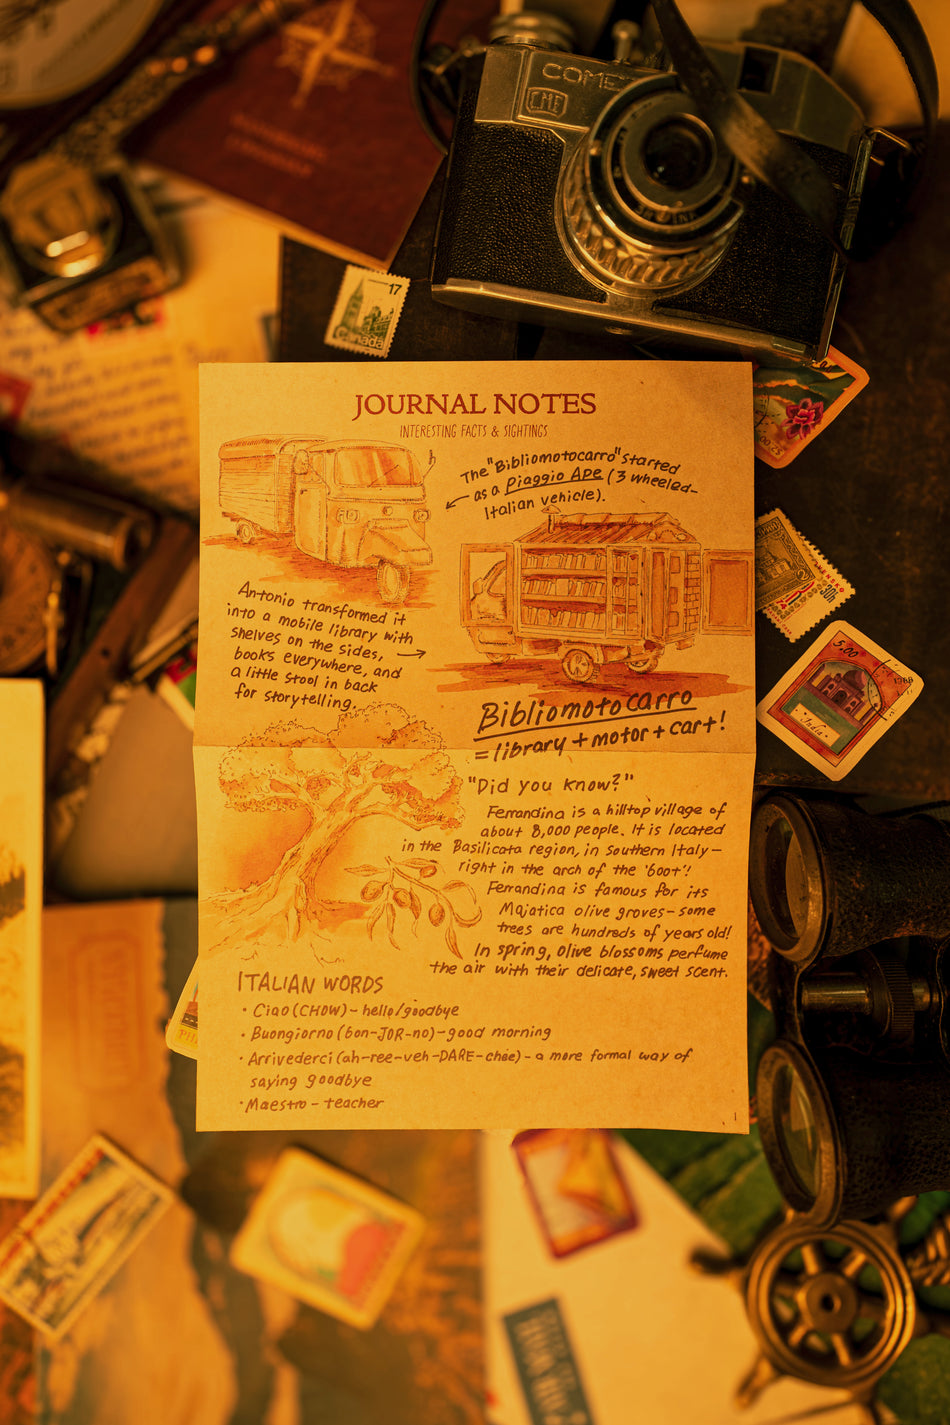 COME
CME
17
Canada
JOURNAL NOTES
INTERESTING FACTS & SIGHTINGS
The "Bibliomotocarro" started
as a Piaggio Ape (3 wheeled-
Italian vehicle).
Antonio transformed it
into a mobile library with
shelves on the sides,
books everywhere, and
a little stool in back
for storytelling.
Bibliomotocarro
= library + motor + cart!
"Did you know?"
Ferrandina is a hilltop village of
about 8,000 people. It is located
in the Basilicata region, in Southern Italy-
right in the arch of the 'boot'!
Ferrandina is famous for its
Majatica olive groves- some
trees are hundreds of years old!
In spring, olive blossoms perfume
the air with their delicate, sweet scent.
ITALIAN WORDS
• Ciao (CHOW) - hello/goodbye
• Buongiorno (bon-JOR-no) - good morning
• Arrivederci (ah-ree-veh-DARE-chee) - a more formal way of
saying goodbye
• Maestro - teacher
1
5.00
India
30h